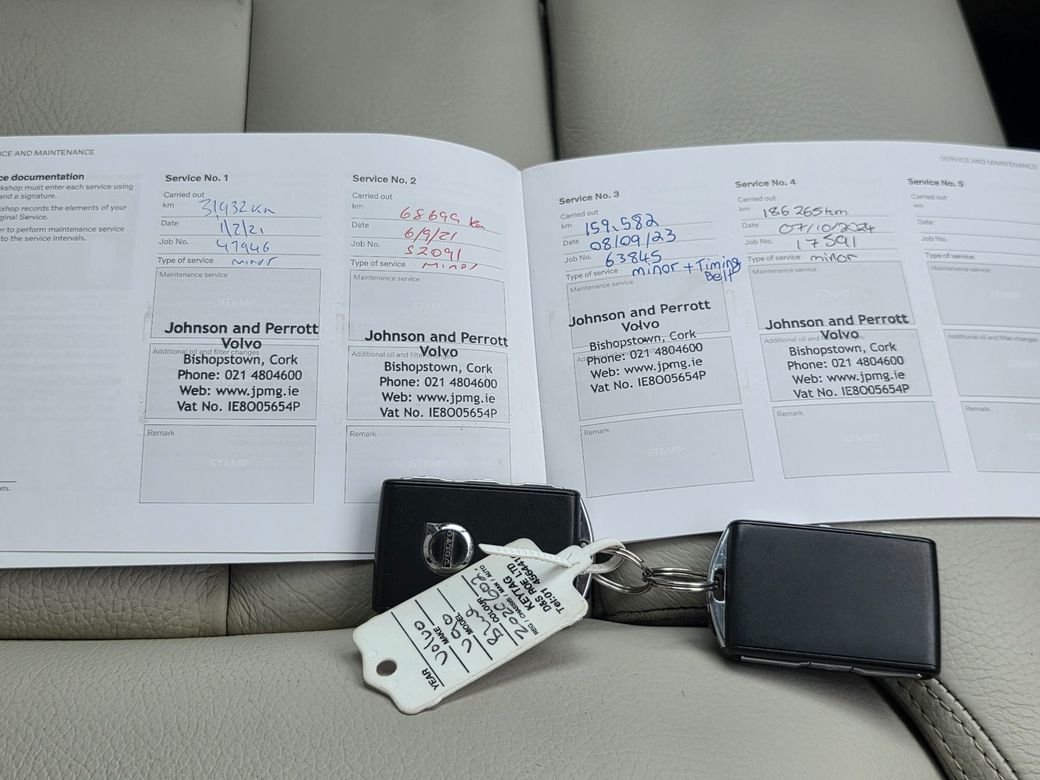 ICE AND MAINTENANCE
ce documentation
kshop must enter each service using
and a signature.
kshop records the elements of your
ginal Service.
er to perform maintenance service
to the service intervals.
ets.
Service No. 1
Carried out
km 31932 km
Date 1/2/21
Job No. 47946
Type of service minor
Maintenance service
STAMP
Johnson and Perrott
Volvo
Additional oil and filter changes
Bishopstown, Cork
Phone: 021 4804600
Web: www.jpmg.ie
Vat No. IE8O05654P
Remark
STAMP
Service No. 2
Carried out
km 68699 km
Date 6/9/21
Job No. 52091
Type of service minor
Maintenance service
Johnson and Perrott
Volvo
Additional oil and filt
Bishopstown, Cork
Phone: 021 4804600
Web: www.jpmg.ie
Vat No. IE8O05654P
Remark
STAMP
Service No. 3
Carried out
km 159,582
Date 08/09/23
Job No. 63845
Type of service minor + Timing
Belt
Maintenance service
Johnson and Perrott
Volvo
Bishopstown, Cork
Phone: 021 4804600
Web: www.jpmg.ie
Vat No. IE8O05654P
Remark
STAMP
SERVICE AND MAINTENANCE
Service No. 4
Carried out
km 186265km
Date 07/10/2024
Job No. 17591
Type of service minor
Maintenance service
Johnson and Perrott
Volvo
Bishopstown, Cork
Phone: 021 4804600
Web: www.jpmg.ie
Vat No. IE8O05654P
Remark
STAMP
Service No. 5
Carried out
km
Date
Job No.
Type of service
Maintenance service
Additional oil and filter changes
Remark
VOLVO
D&S ROE LTD
KEYTAG
Tel:01 456441
REG / CHASSIS / MAN / AUTO
202C602
COLOUR
Blue
MODEL
V60
MAKE
Volvo
YEAR